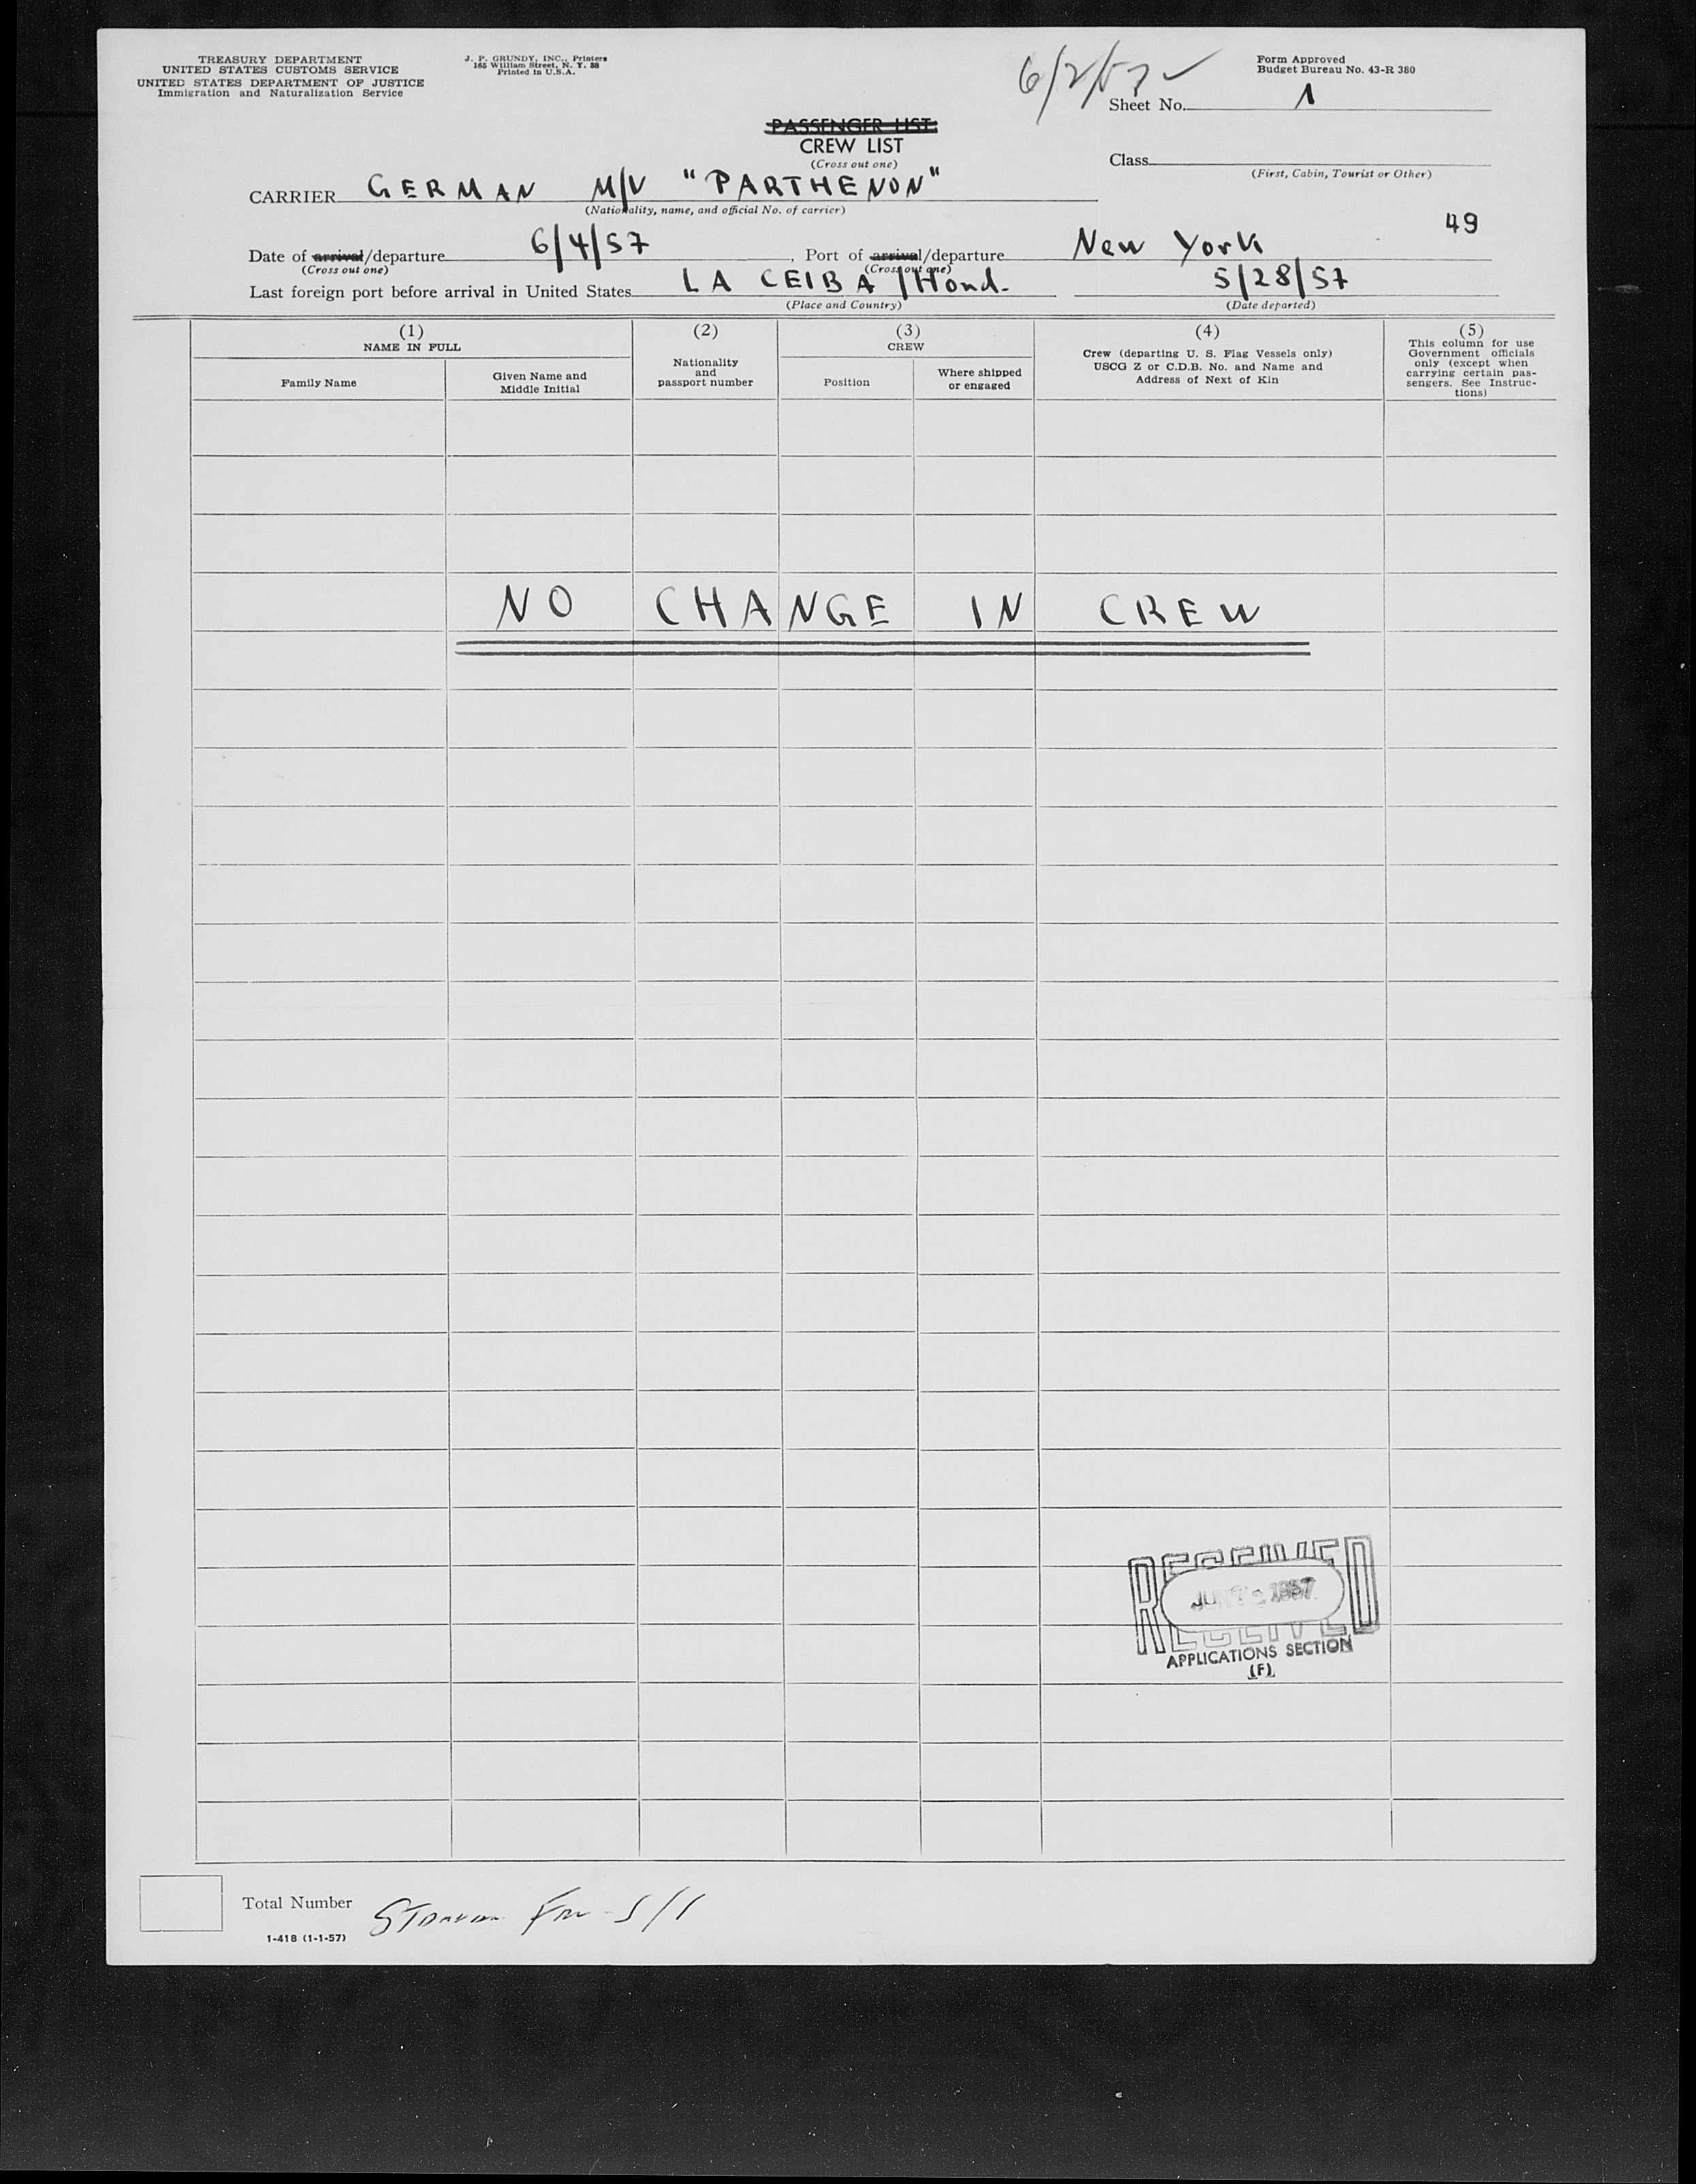 TREASURY DEPARTMENT
UNITED STATES CUSTOMS SERVICE
UNITED STATES DEPARTMENT OF JUSTICE
Immigration and Naturalization Service
J. P. GRUNDY, INC., Printers
165 William Street, N. Y. 38
Printed in U.S.A.
6/2/57
Form Approved
Budget Bureau No. 43-R 380
Sheet No. 1
PASSENGER LIST
CREW LIST
(Cross out one)
Class
(First, Cabin, Tourist or Other)
CARRIER GERMAN M/V "PARTHENON"
(Nationality, name, and official No. of carrier)
49
Date of arrival/departure 6/4/57, Port of arrival/departure New York
(Cross out one) (Cross out one)
Last foreign port before arrival in United States LA CEIBA /Hond. 5/28/57
(Place and Country) (Date departed)
(1) (2) (3) (4) (5)
NAME IN FULL
Family Name
Given Name and
Middle Initial
Nationality
and
passport number
CREW
Position
Where shipped
or engaged
Crew (departing U. S. Flag Vessels only)
USCG Z or C.D.B. No. and Name and
Address of Next of Kin
This column for use
Government officials
only (except when
carrying certain pas-
sengers. See Instruc-
tions)
NO CHANGE IN CREW
RECEIVED
JUN 1957
RECEIVED
APPLICATIONS SECTION
(F)
Total Number
1-418 (1-1-57)